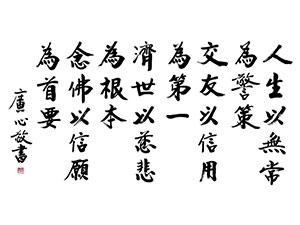 人生以無常
為警策
交友以信用
為第一
濟世以慈悲
為根本
念佛以信願
為首要
廣心敬書